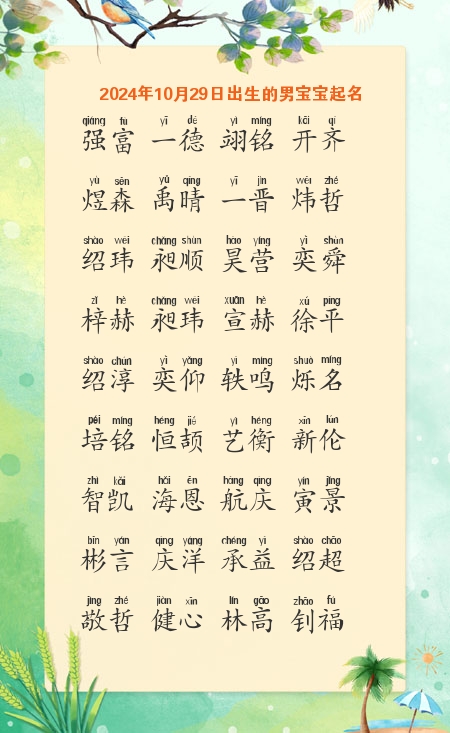 2024年10月29日出生的男宝宝起名
qiáng fù yī dé yì míng kāi qí
强富 一德 翊铭 开齐
yù sēn yǔ qíng yī jìn wěi zhé
煜森 禹晴 一晋 炜哲
shào wěi chǎng shùn hào yíng yì shùn
绍玮 昶顺 昊营 奕舜
zǐ hè chǎng wěi xuān hè xú píng
梓赫 昶玮 宣赫 徐平
shào chún yì yǎng yì míng shuò míng
绍淳 奕仰 轶鸣 烁名
péi míng héng jié yì héng xīn lún
培铭 恒颉 艺衡 新伦
zhì kǎi hǎi ēn háng qìng yín jǐng
智凯 海恩 航庆 寅景
bīn yán qìng yáng chéng yì shào chāo
彬言 庆洋 承益 绍超
jìng zhé jiàn xīn lín gāo zhāo fú
敬哲 健心 林高 钊福